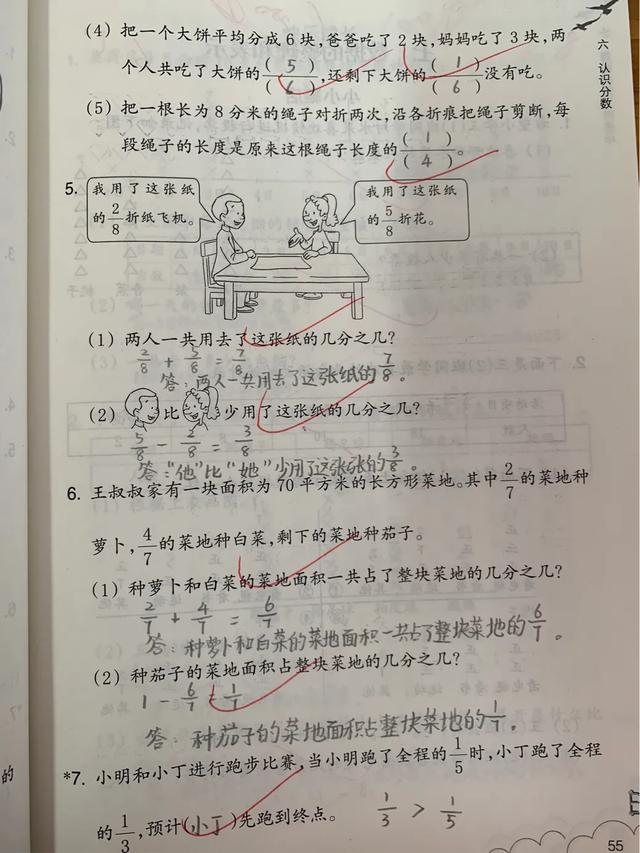 (4) 把一个大饼平均分成6块,爸爸吃了2块,妈妈吃了3块,两
个人共吃了大饼的(5)/(6),还剩下大饼的(1)/(6)没有吃。
(5) 把一根长为8分米的绳子对折两次,沿各折痕把绳子剪断,每
段绳子的长度是原来这根绳子长度的(1)/(4)。
六 认识分数
5.
我用了这张纸
的2/8折纸飞机。
我用了这张纸
的5/8折花。
(1) 两人一共用去了这张纸的几分之几?
2/8 + 5/8 = 7/8
答:两人一共用去了这张纸的7/8。
(2) 比 少用了这张纸的几分之几?
5/8 - 2/8 = 3/8
答:“他”比“她”少用了这张张的3/8。
6. 王叔叔家有一块面积为70平方米的长方形菜地。其中2/7的菜地种
萝卜,4/7的菜地种白菜,剩下的菜地种茄子。
(1) 种萝卜和白菜的菜地面积一共占了整块菜地的几分之几?
2/7 + 4/7 = 6/7
答:种萝卜和白菜的菜地面积一共占了整块菜地的6/7。
(2) 种茄子的菜地面积占整块菜地的几分之几?
1 - 6/7 = 1/7
答:种茄子的菜地面积占整块菜地的1/7。
*7. 小明和小丁进行跑步比赛,当小明跑了全程的1/5时,小丁跑了全程
的1/3,预计(小丁)先跑到终点。 1/3 > 1/5
的
55